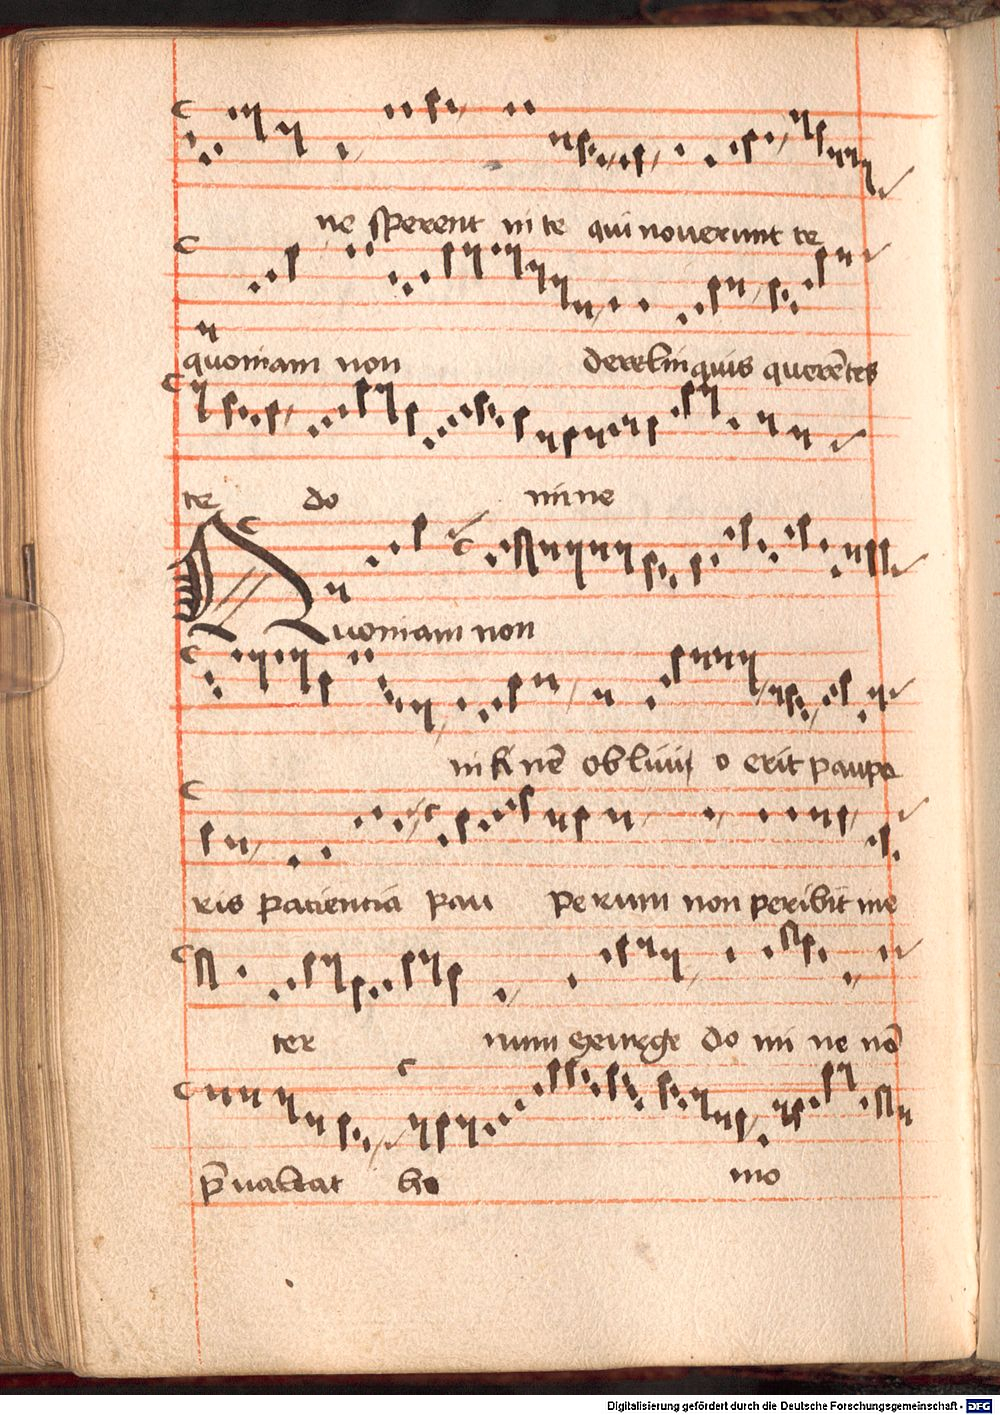 ne sperent in te qui noverunt te
quoniam non derelinquis querētes
te do mine
Quoniam non
in fi nē oblivi o erit paupe
ris patientia pau perum non peribit in e
ter num exurge do mi ne nō
p̄valeat ho mo
Digitalisierung gefördert durch die Deutsche Forschungsgemeinschaft - DFG